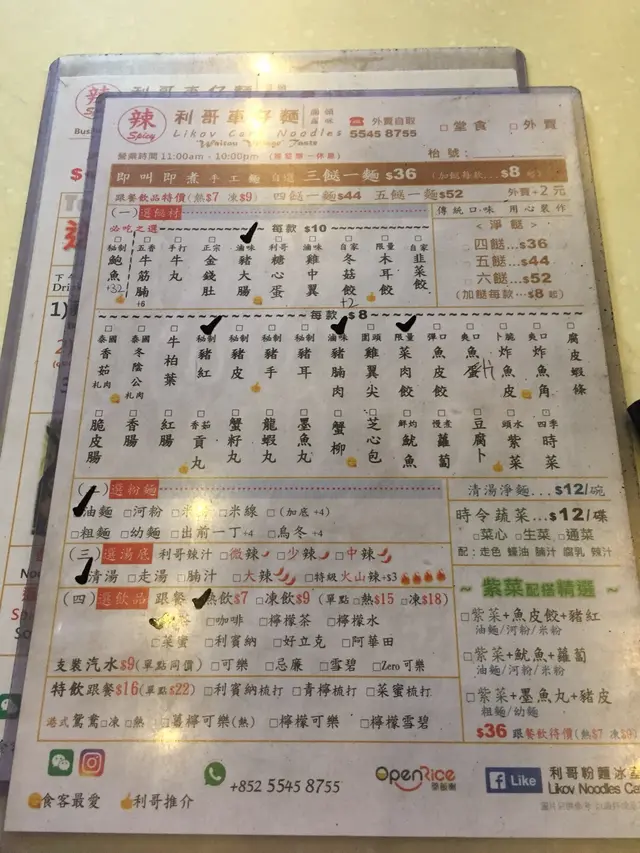 利哥車仔麵
辣
Spicy
利哥車仔麵
Likov Cart Noodles
外賣自取
5545 8755
□堂食 □外賣
營業時間 11:00am - 10:00pm
枱號：
即叫即煮 手工麵 自選 三餸一麵 $36 (加餸每款...$8起)
跟餐飲品特價(熱$7 凍$9) 四餸一麵$44 五餸一麵$52 外賣+2元
(一)選餸材
必吃之選
每款 $10
傳統口味 用心製作
<淨餸>
四餸...$36
五餸...$44
六餸...$52
(加餸每款...$8起)
□秘制鮑魚+32
□五香牛筋腩+6
□手打牛丸
□正宗金錢肚
□滷味豬大腸
□自家糖心蛋
□滷味雞中翼
□自家冬菇餃+2
□限量木耳餃
□自家韭菜餃
每款 $8
□泰國香茹札肉
□泰國冬陰公札肉
□牛柏葉
□秘制豬紅
□秘制豬皮
□秘制豬手
□秘制豬耳
□滷味豬腩肉
□雞翼尖
□限量菜肉餃
□彈口魚皮餃
□爽口魚蛋片
□卜脆炸魚皮
□爽口炸魚角
□腐皮蝦條
□脆皮腸
□香腸
□紅腸
□香茹貢丸
□蟹籽丸
□龍蝦丸
□墨魚丸
□蟹柳
□芝心包
□鮮灼魷魚
□慢煮蘿蔔
□豆腐卜
□頭水紫菜
□四季時菜
(二)選粉麵
□油麵 □河粉 □米粉 □米線 □(加底 +4)
□粗麵 □幼麵 □出前一丁+4 □烏冬+4
清湯淨麵...$12/碗
時令蔬菜...$12/碟
□菜心 □生菜 □通菜
配：走色 蠔油 腩汁 腐乳 辣汁
(三)選湯底 利哥辣汁 □微辣 □少辣 □中辣
□清湯 □走湯 □腩汁 □大辣 □特級火山辣+$3
(四)選飲品 跟餐 □熱飲$7 □凍飲$9 (單點 □熱$15 □凍$18)
□咖啡 □檸檬茶 □檸檬水
□菜蜜 □利賓納 □好立克 □阿華田
支裝汽水$9(單點同價) □可樂 □忌廉 □雪碧 □Zero可樂
特飲跟餐$16(單點$22) □利賓納梳打 □青檸梳打 □菜蜜梳打
港式鴛鴦□凍□熱 □薑檸可樂(熱) □檸檬可樂 □檸檬雪碧
~ 紫菜配搭精選 ~
□紫菜+魚皮餃+豬紅
油麵/河粉/米粉
□紫菜+魷魚+蘿蔔
油麵/河粉/米粉
□紫菜+墨魚丸+豬皮
粗麵/幼麵
$36 跟餐飲得價(熱$7 凍$9)
+852 5545 8755
OpenRice
f Like
利哥粉麵冰室
Likov Noodles Ca
食客最愛 利哥推介